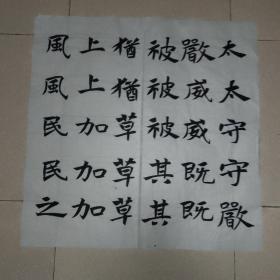 太太守守嚴
嚴威威既既
被被被其其
猶猶草草草
上上加加加
風風民民之